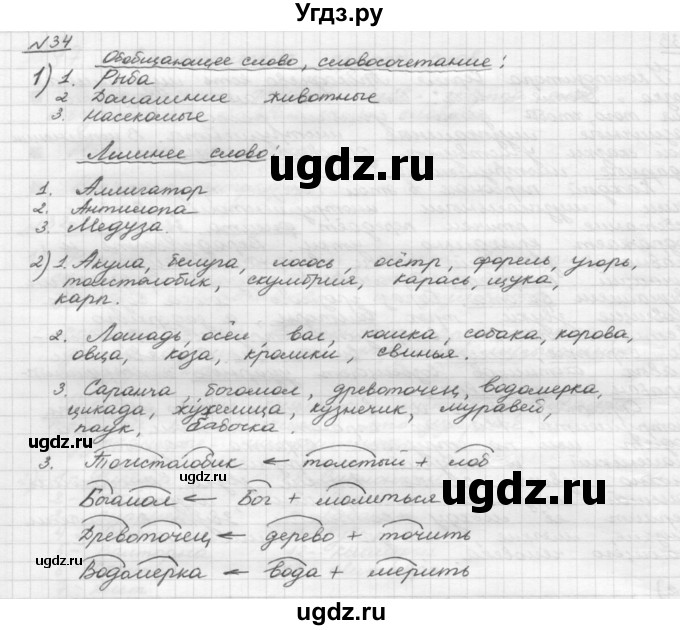 Угдз.ру
№34
Обобщающее слово, словосочетание:
1) 1. Рыба
2 Домашние животные
3. Насекомые
ugdz.ru
Лишнее слово:
1. Аллигатор
2. Антилопа
3. Медуза.
2) 1. Акула, белуга, лосось, осётр, форель, угорь,
толстолобик, скумбрия, карась, щука,
карп.
ugdz.ru
2. Лошадь, осёл, вол, кошка, собака, корова,
овца, коза, кролики, свинья.
3. Саранча, богомол, древоточец, водомерка,
цикада, жужелица, кузнечик, муравей,
паук, бабочка.
ugdz.ru
ugdz.ru
3. Толстолобик ← толстый + лоб
Богомол ← Бог + молиться
ugdz.ru
Древоточец ← дерево + точить
ugdz.ru
Водомерка ← вода + мерить
ugdz.ru
ugdz.ru